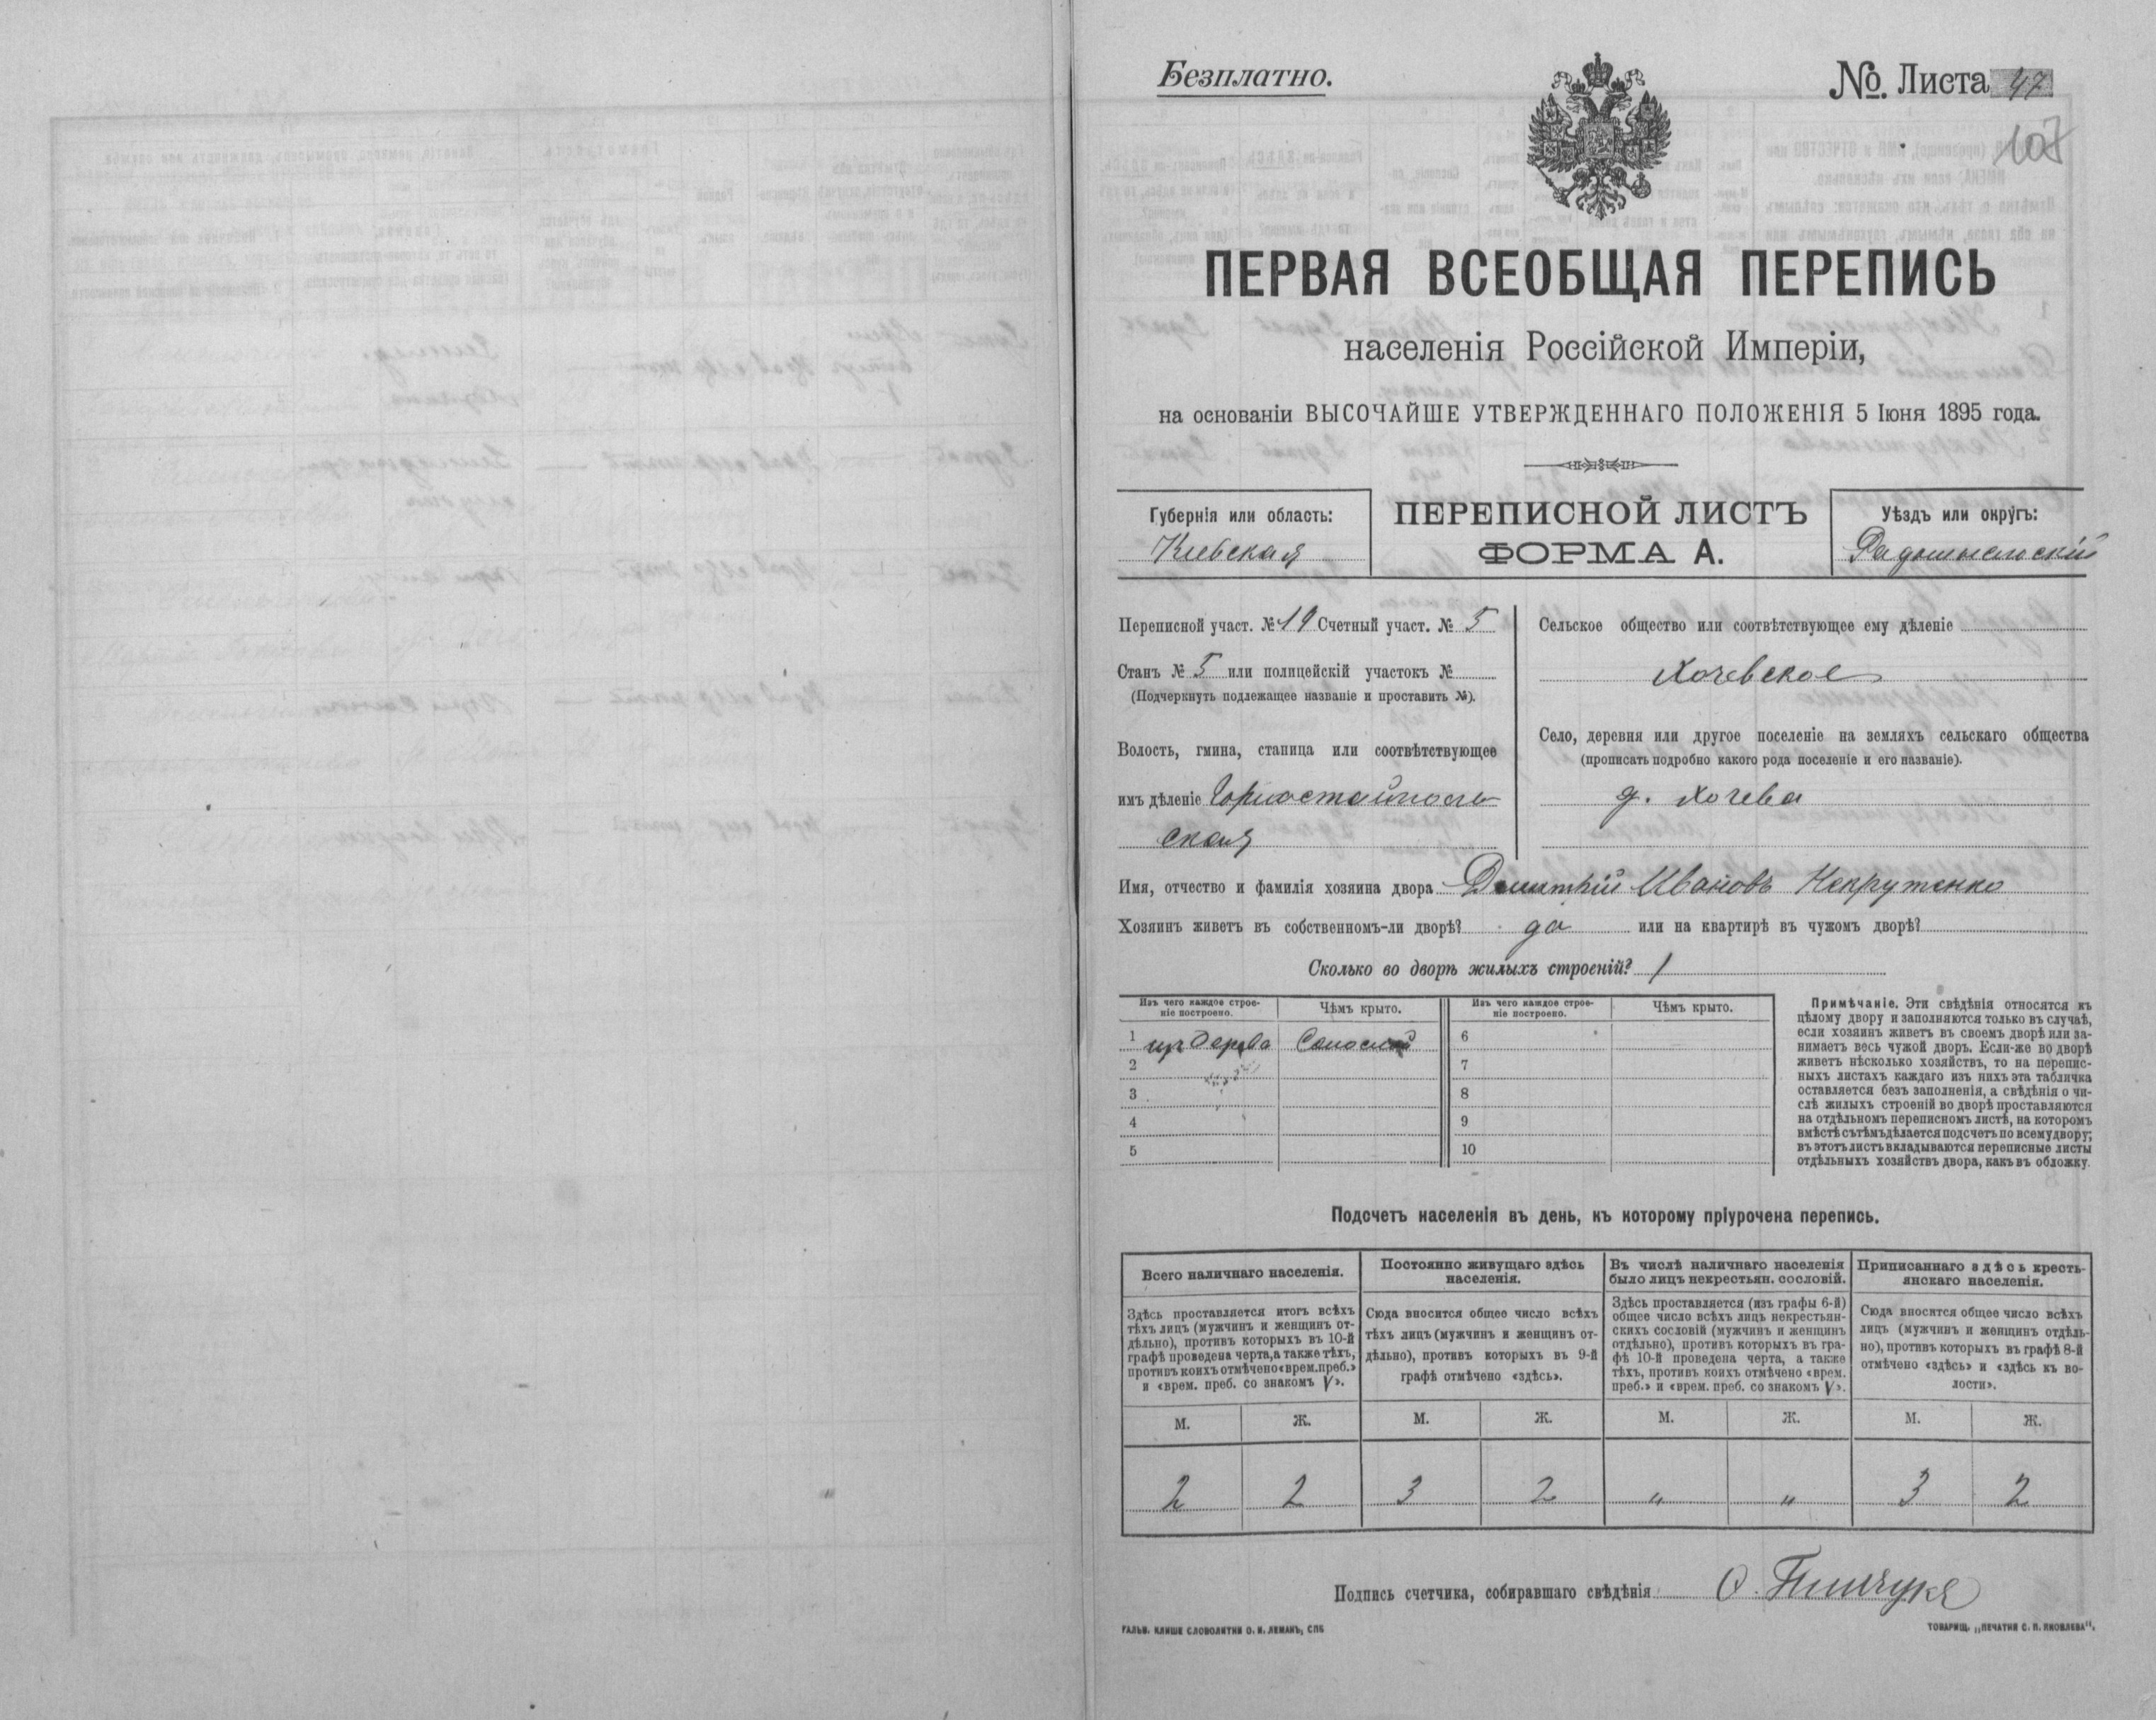 Безплатно.
№. Листа 47
107
ПЕРВАЯ ВСЕОБЩАЯ ПЕРЕПИСЬ
населенія Россійской Имперіи,
на основаніи ВЫСОЧАЙШЕ УТВЕРЖДЕННАГО ПОЛОЖЕНІЯ 5 Іюня 1895 года.
Губернія или область:
Кіевская
ПЕРЕПИСНОЙ ЛИСТЪ
ФОРМА А.
Уѣздъ или округъ:
Радомысльскій
Переписной участ. № 19 Счетный участ. № 5
Станъ № 5 или полицейскій участокъ №
(Подчеркнуть подлежащее названіе и проставить №).
Волость, гмина, станица или соотвѣтствующее
имъ дѣленіе Горностайполь
ская
Сельское общество или соотвѣтствующее ему дѣленіе
Хочевское
Село, деревня или другое поселеніе на земляхъ сельскаго общества
(прописать подробно какого рода поселеніе и его названіе).
д. Хочева
Имя, отчество и фамилія хозяина двора Димитрій Ивановъ Некрутенко
Хозяинъ живетъ въ собственномъ-ли дворѣ? да или на квартирѣ въ чужомъ дворѣ?
Сколько во дворѣ жилыхъ строеній? 1
Изъ чего каждое строе-
ніе построено.
Чѣмъ крыто.
Изъ чего каждое строе-
ніе построено.
Чѣмъ крыто.
1 изъ дерева Соломой 6
2 7
3 8
4 9
5 10
Примѣчаніе. Эти свѣдѣнія относятся къ
цѣлому двору и заполняются только въ случаѣ,
если хозяинъ живетъ въ своемъ дворѣ или за-
нимаетъ весь чужой дворъ. Если-же во дворѣ
живетъ нѣсколько хозяйствъ, то на перепис-
ныхъ листахъ каждаго изъ нихъ эта табличка
оставляется безъ заполненія, а свѣдѣнія о чи-
слѣ жилыхъ строеній во дворѣ проставляются
на отдѣльномъ переписномъ листѣ, на которомъ
вмѣстѣ съ тѣмъ дѣлается подсчетъ по всему двору;
въ этотъ листъ вкладываются переписные листы
отдѣльныхъ хозяйствъ двора, какъ въ обложку.
Подсчетъ населенія въ день, къ которому пріурочена перепись.
Всего наличнаго населенія.
Здѣсь проставляется итогъ всѣхъ
тѣхъ лицъ (мужчинъ и женщинъ от-
дѣльно), противъ которыхъ въ 10-й
графѣ проведена черта, а также тѣхъ,
противъ коихъ отмѣчено «врем. преб.»
и «врем. преб. со знакомъ V».
Постоянно живущаго здѣсь
населенія.
Сюда вносится общее число всѣхъ
тѣхъ лицъ (мужчинъ и женщинъ от-
дѣльно), противъ которыхъ въ 9-й
графѣ отмѣчено «здѣсь».
Въ числѣ наличнаго населенія
было лицъ некрестьян. сословій.
Здѣсь проставляется (изъ графы 6-й)
общее число всѣхъ лицъ некрестьян-
скихъ сословій (мужчинъ и женщинъ
отдѣльно), противъ которыхъ въ гра-
фѣ 10-й проведена черта, а также
тѣхъ, противъ коихъ отмѣчено «врем.
преб.» и «врем. преб. со знакомъ V».
Приписаннаго здѣсь кресть-
янскаго населенія.
Сюда вносится общее число всѣхъ
лицъ (мужчинъ и женщинъ отдѣль-
но), противъ которыхъ въ графѣ 8-й
отмѣчено «здѣсь» и «здѣсь къ во-
лости».
М. Ж. М. Ж. М. Ж. М. Ж.
2 2 3 2 " " 3 2
Подпись счетчика, собиравшаго свѣдѣнія О. Пинчукъ
ГАЛЬВ. КЛИШЕ СЛОВОЛИТНИ О. И. ЛЕМАНЪ, СПБ
ТОВАРИЩ. „ПЕЧАТНЯ С. П. ЯКОВЛЕВА".